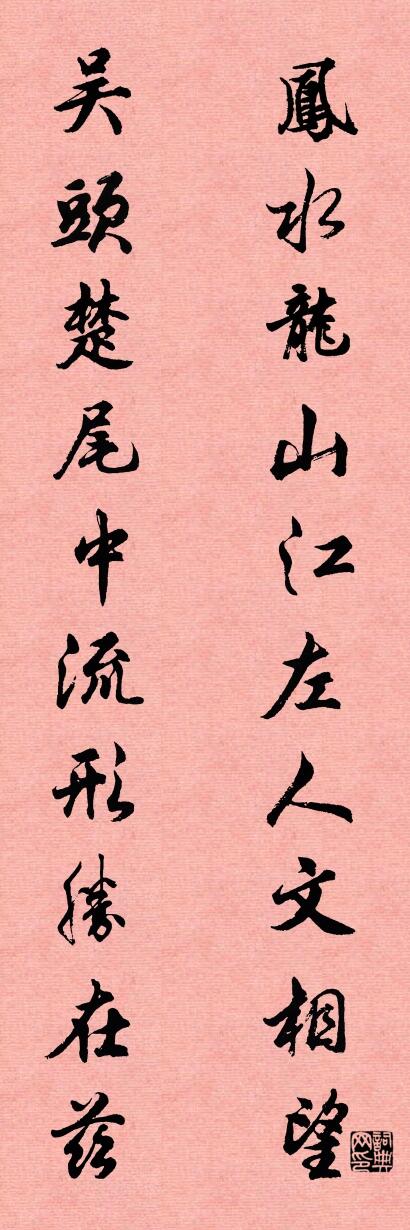 鳳水龍山江左人文相望
吴頭楚尾中流形勝在茲
詞典网印